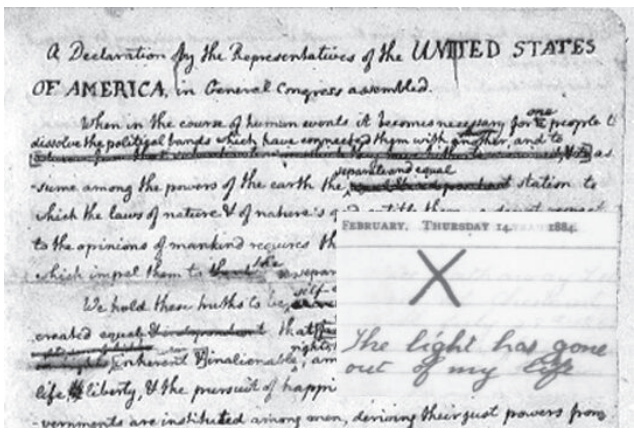 A Declaration by the Representatives of the UNITED STATES
OF AMERICA, in General Congress assembled.
When in the course of human events it becomes necessary for one people t
dissolve the political bands which have connected them with another, and to
as
separate and equal
-sume among the powers of the earth the station to
which the laws of nature & of nature's
to the opinions of mankind requires th
which impel them to the separ
self-e
We hold these truths to be
created equal that
rights
inherent & inalionable, am
life, & liberty, & the pursuit of happi
-vernments are instituted among men, deriving their just powers from
FEBRUARY. THURSDAY 14. 1884.
X
The light has gone
out of my life